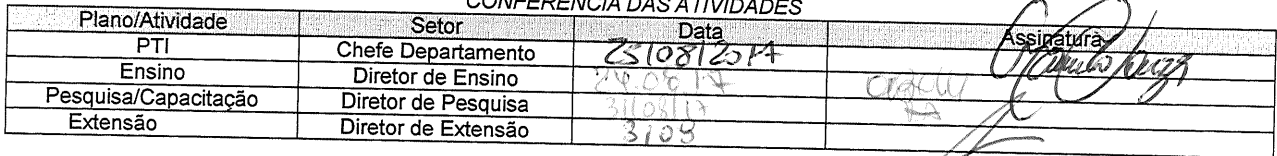 CONFERÊNCIA DAS ATIVIDADES
Plano/Atividade Setor Data Assinatura
PTI Chefe Departamento 25/08/2017
Ensino Diretor de Ensino 24.08.17
Pesquisa/Capacitação Diretor de Pesquisa 31/08/17
Extensão Diretor de Extensão 3/08